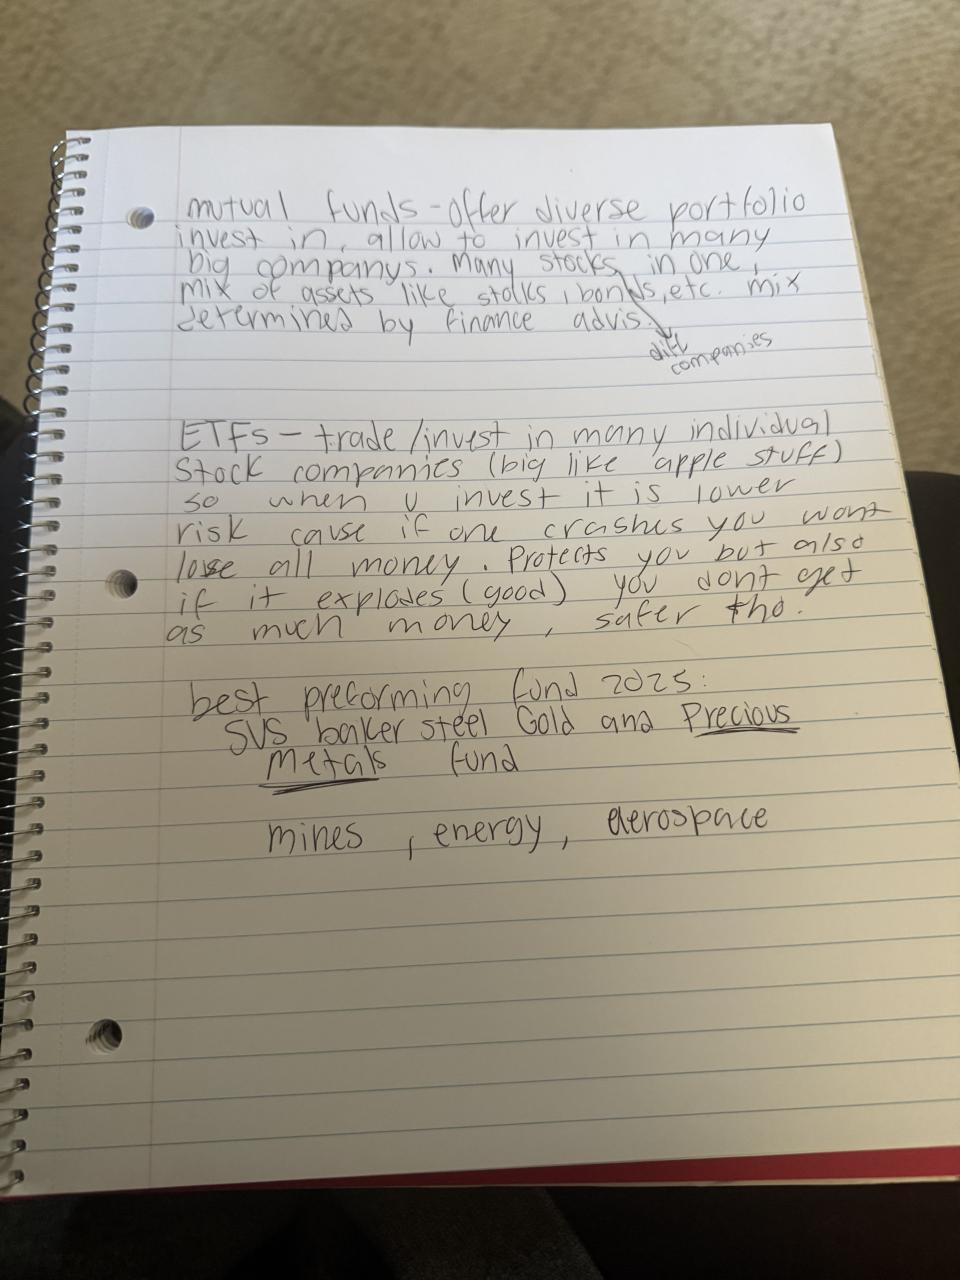 mutual funds - offer diverse portfolio
invest in, allow to invest in many
big companys. Many stocks in one,
mix of assets like stolks, bonds, etc. mix
determined by finance advis.
diff
companies
ETFs - trade/invest in many individual
Stock companies (big like apple stuff)
so when u invest it is lower
risk cause if one crashes you wont
lose all money. Protects you but also
if it explodes (good) you dont get
as much money, safer tho.
best precorming fund 2025:
SVS baker steel Gold and Precious
Metals fund
mines, energy, aerospace